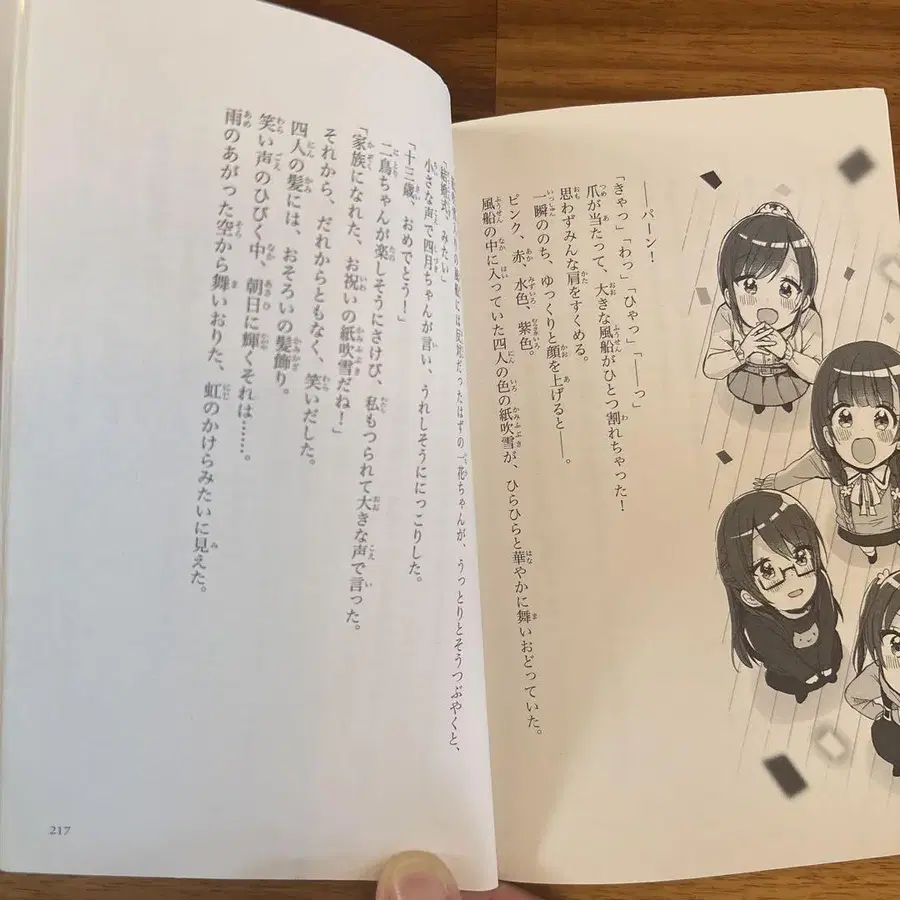 ――パーン！
「きゃっ」「わっ」「ひゃっ」「――っ」
爪が当たって、大きな風船がひとつ割れちゃった！
思わずみんな肩をすくめる。
一瞬ののち、ゆっくりと顔を上げると――。
ピンク、赤、水色、紫色。
風船の中に入っていた四人の色の紙吹雪が、ひらひらと華やかに舞いおどっていた。
には反対だったはずの一花ちゃんが、うっとりとそうつぶやくと、
「結婚式、みたい」
小さな声で四月ちゃんが言い、うれしそうににっこりした。
「十三歳、おめでとう！」
二鳥ちゃんが楽しそうにさけび、私もつられて大きな声で言った。
「家族になれた、お祝いの紙吹雪だね！」
それから、だれからともなく、笑いだした。
四人の髪には、おそろいの髪飾り。
笑い声のひびく中、朝日に輝くそれは……。
雨のあがった空から舞いおりた、虹のかけらみたいに見えた。
217